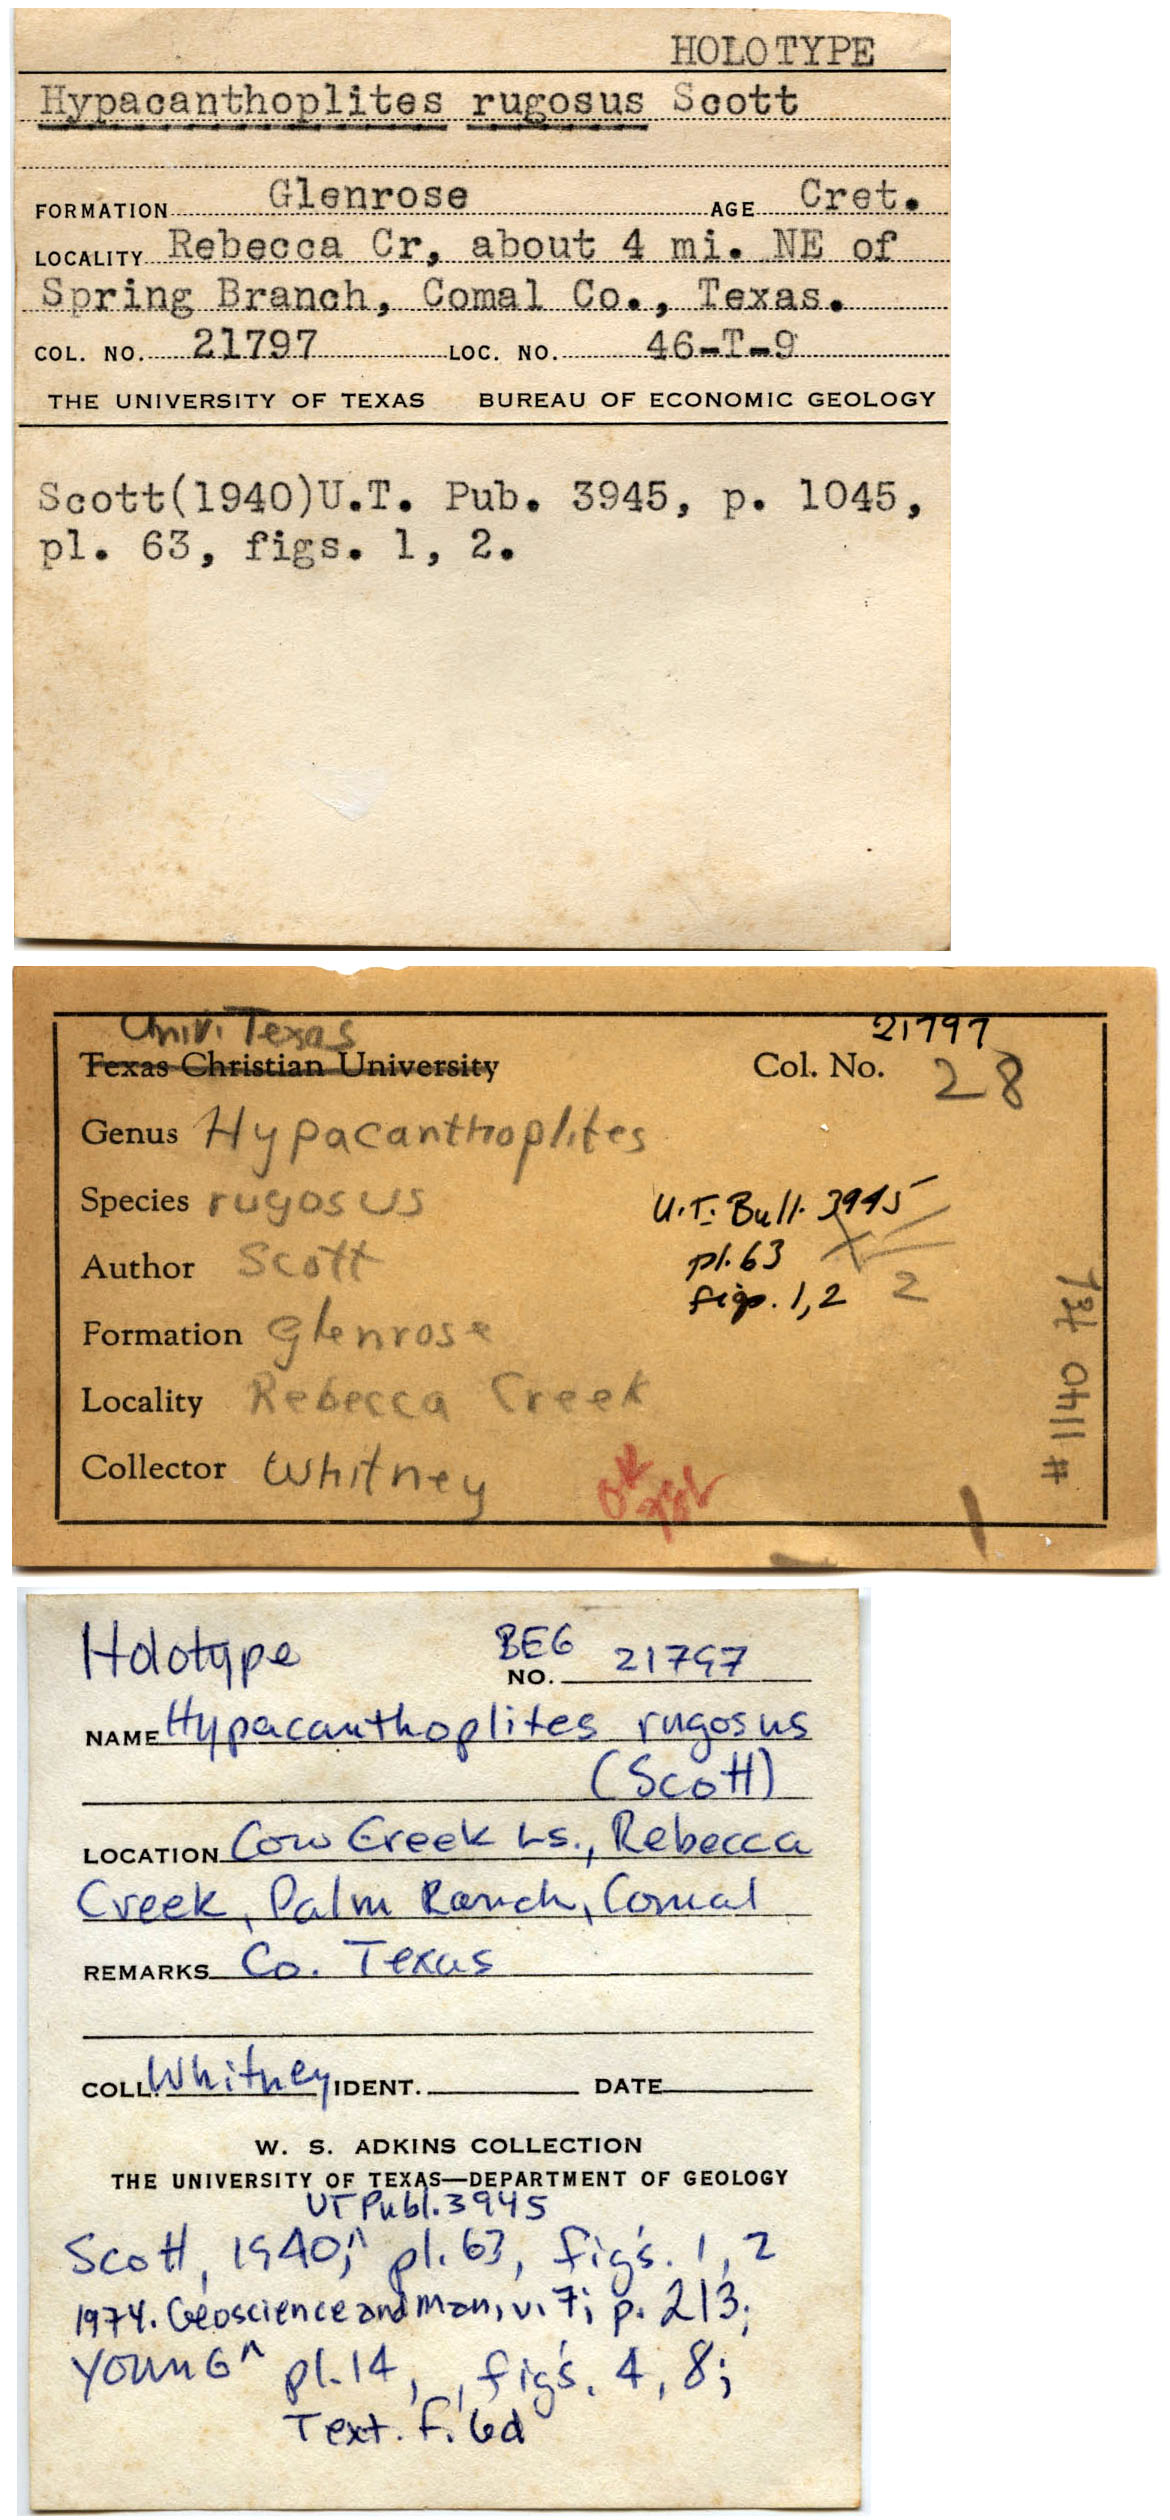 HOLOTYPE
Hypacanthoplites rugosus Scott
FORMATION Glenrose AGE Cret.
LOCALITY Rebecca Cr, about 4 mi. NE of
Spring Branch, Comal Co., Texas.
COL. NO. 21797 LOC. NO. 46-T-9
THE UNIVERSITY OF TEXAS BUREAU OF ECONOMIC GEOLOGY
Scott(1940)U.T. Pub. 3945, p. 1045,
pl. 63, figs. 1, 2.
Univ. Texas
21797
Texas Christian University Col. No. 28
Genus Hypacanthoplites
Species rugosus
U.T. Bull. 3945
Author Scott
pl. 63
figs. 1, 2
2
Formation Glenrose
Locality Rebecca Creek
Collector Whitney
OK
# 1140
Holotype BEG
NO. 21797
NAME Hypacanthoplites rugosus
(Scott)
LOCATION Cow Creek Ls., Rebecca
Creek, Palm Ranch, Comal
REMARKS Co. Texas
COLL. Whitney IDENT. DATE
W. S. ADKINS COLLECTION
THE UNIVERSITY OF TEXAS—DEPARTMENT OF GEOLOGY
UT Publ. 3945
Scott, 1940; ^ pl. 63, fig's. 1, 2
1974. Geoscience and Man, v. 7; p. 213;
YOUNG ^ pl. 14, fig's. 4, 8;
Text. f. 6d